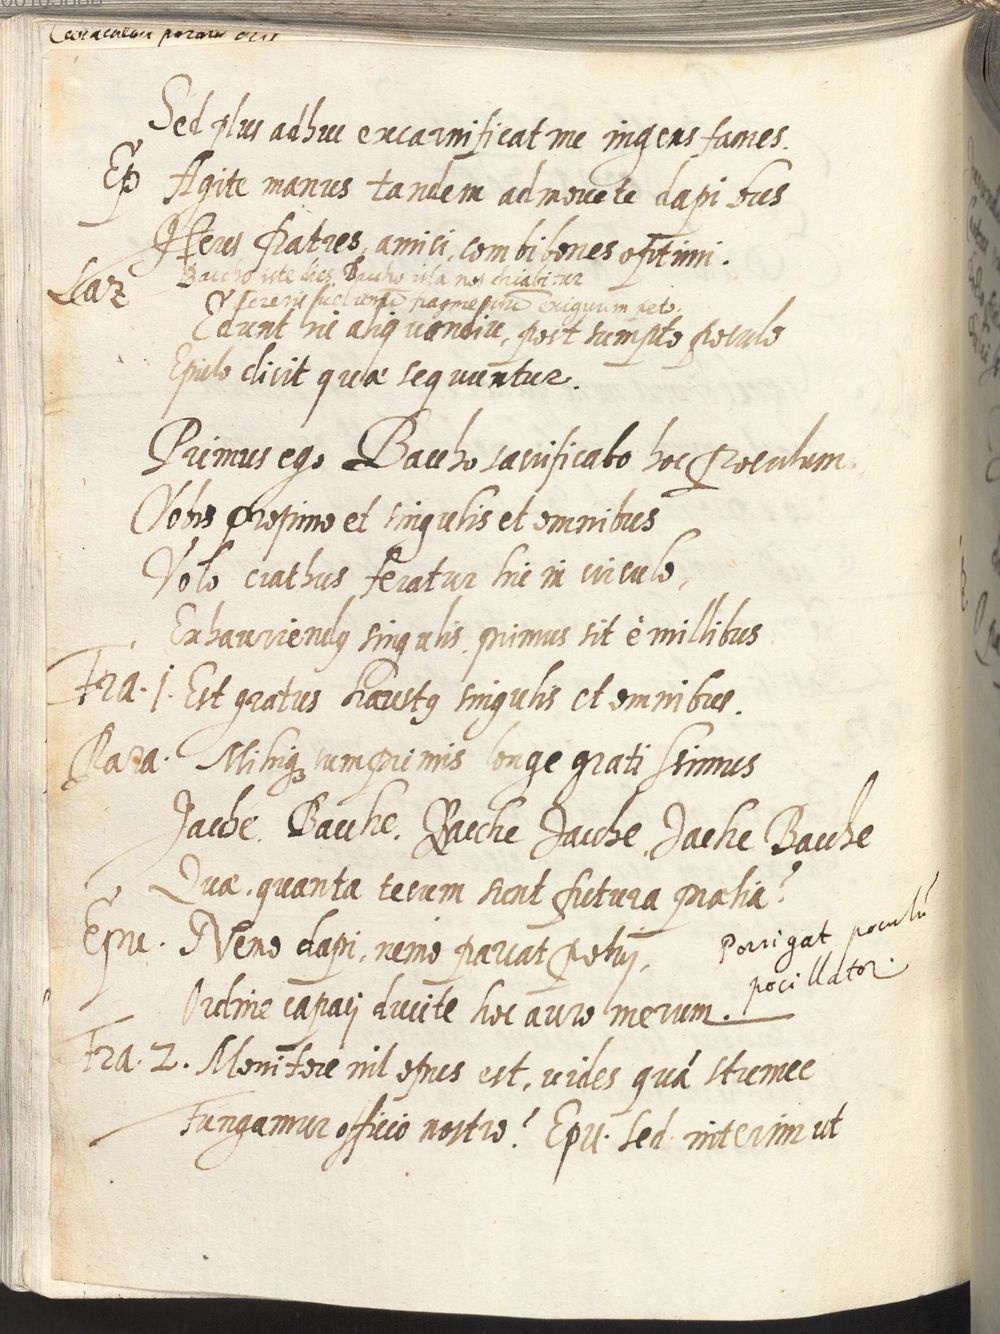 Sed plus adhuc excarnificat me ingens fames.
Ep Agite manus tandem admovete dapibus
fratres, amici, combibones optimi.
Laz Baccho iste dies, Baccho ista nox dicabitur
fragmentum exiguum peto.
Edunt hic aliquandiu, post sumpto poculo
Epulo dicit quae sequuntur.
Primus ego Baccho sacrificabo hoc poculum
Vobis propino et singulis et omnibus
Volo crathus feratur hic in circulo,
Exhauriendus singulis, primus sit è millibus
Fra. 1. Est gratus haustus singulis et omnibus.
Para. Mihiq cumprimis longe gratissimus
Jacche, Bacche, Bacche Jacche, Jache Bacche
Quae, quanta tecum sient futura praelia?
Epu. Nemo dapi, nemo parcat potui,
Porrigat poculũ
pocillator.
Ordine capaci ducite hoc auro merum.
Fra. 2. Monitore nil opus est, vides quá strenue
Fungamur officio nostro? Epu. Sed interim ut